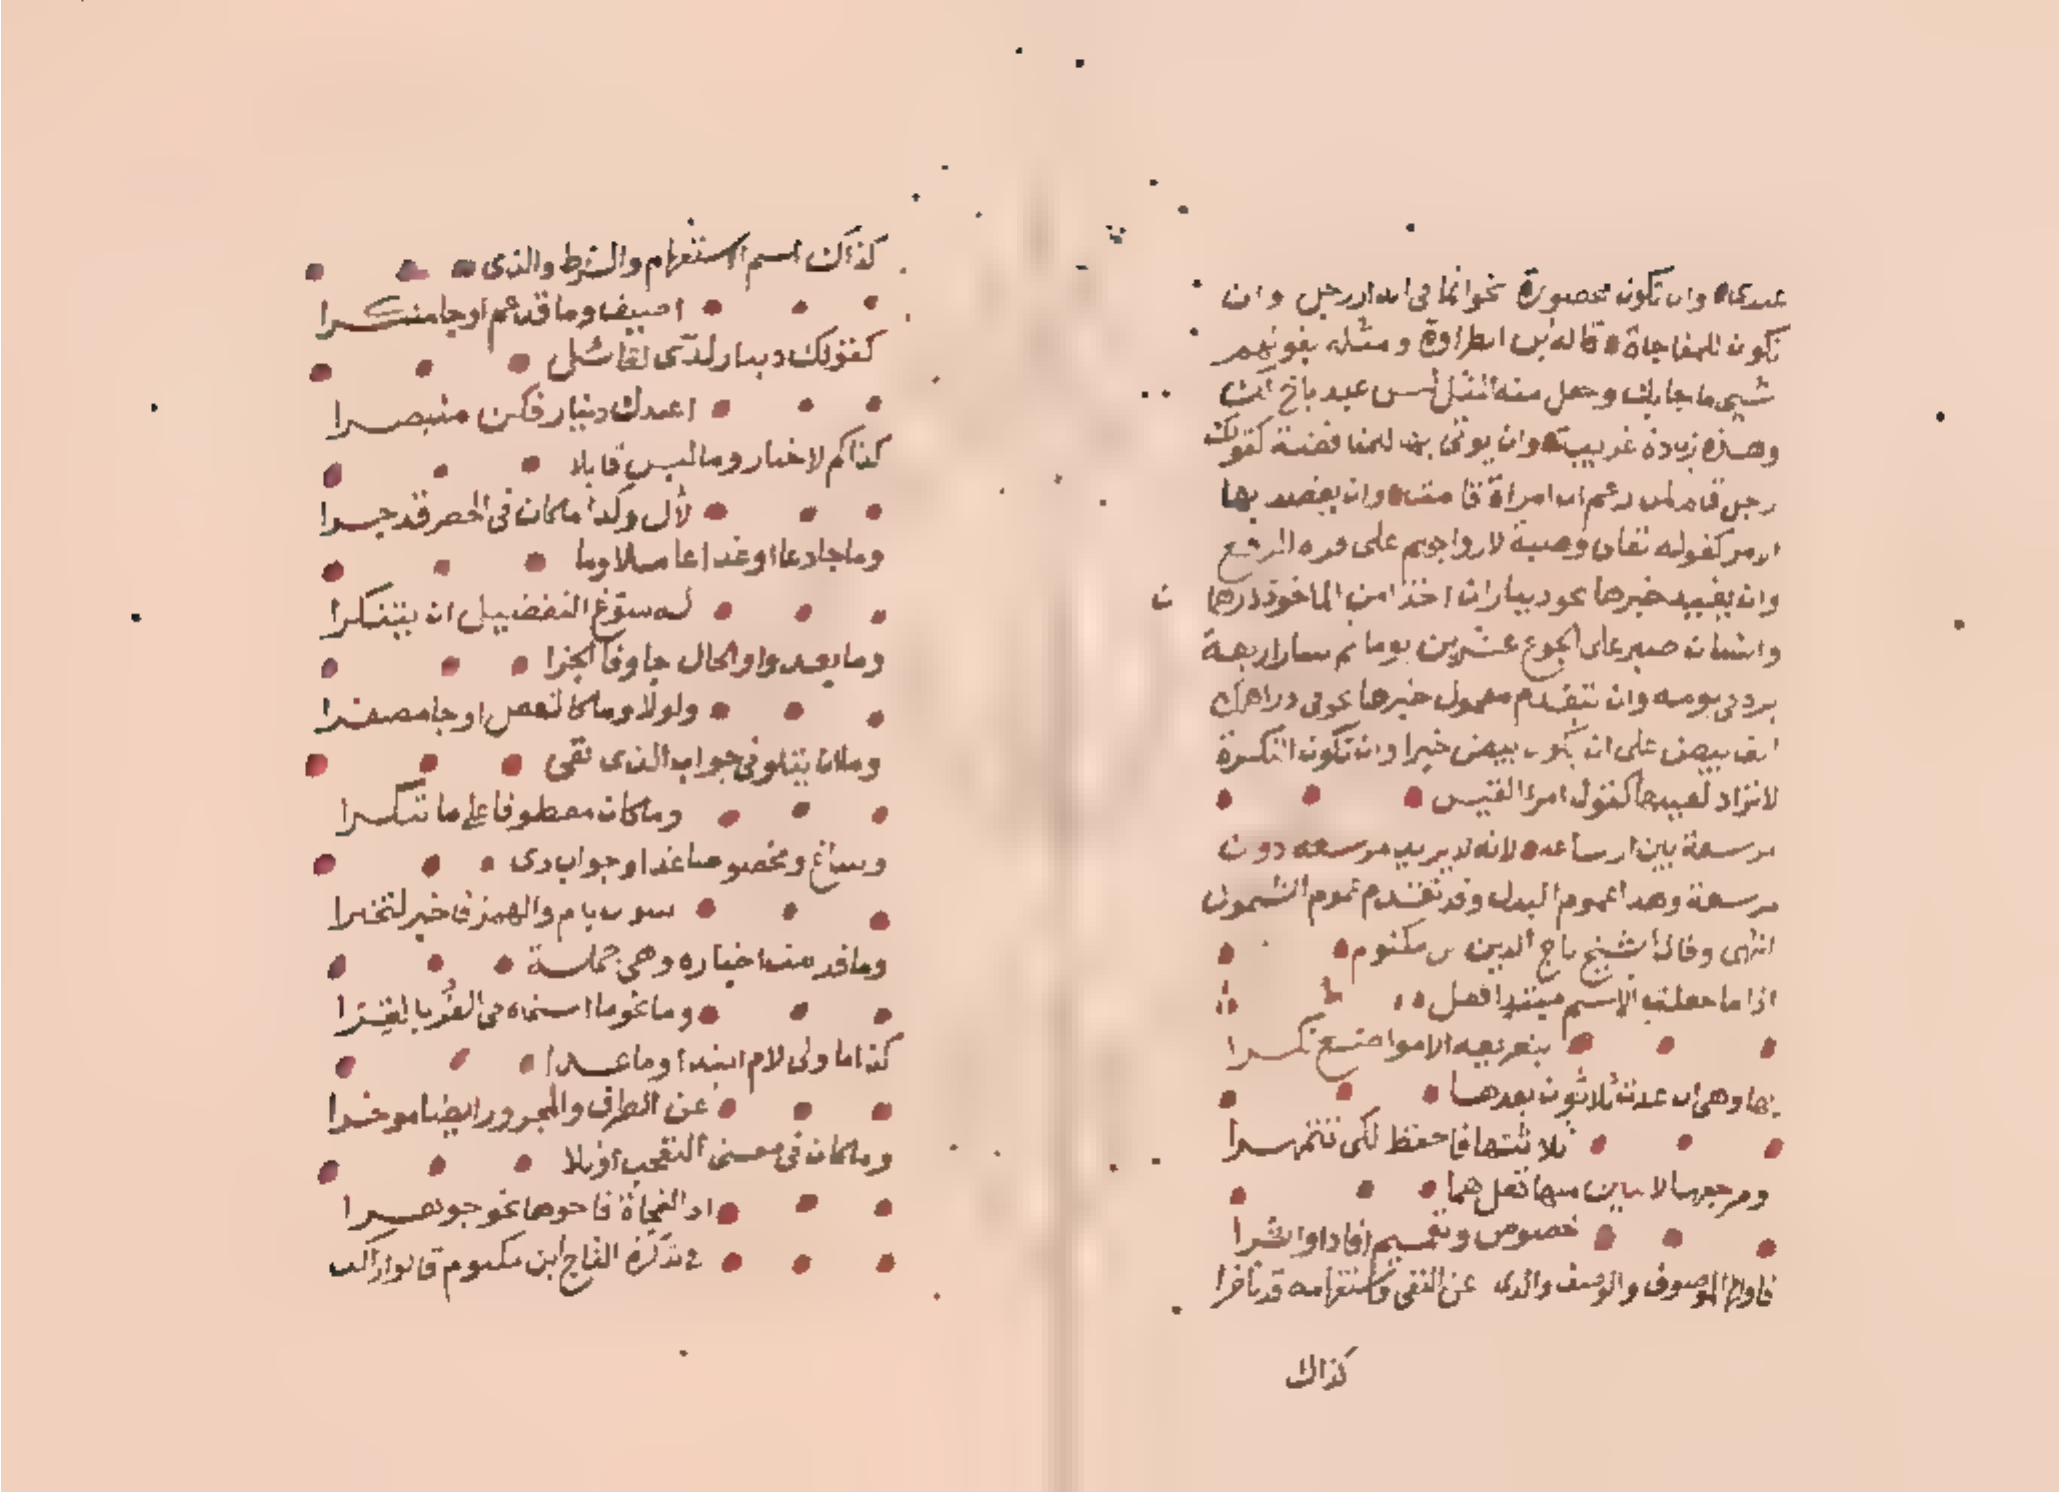 عندى وان تكون محصورة نحو انما فى الدار رجل وان
تكون للمفاجاة قاله ابن الطراوة ومثله بقولهم
شيى ما جا بك وجعل منه المثل ليس عبد باخ لك
وهذه زيادة غريبة وان يوتى بها للمناقضة كقولك
رجل قام لمن زعم ان امراة قامت وان يقصد بها
الامر كقوله تعالى وصية لازواجهم على قراه الرفع
وان يفيد خبرها نحو ديناران اخذا من الماخوذ درهما
وانسان صبر على الجوع عشرين يوما ثم سار اربعة
برد فى يومه وان يتقدم معمول خبرها نحو فى دراهمك
الف بيض على ان يكون بيض خبرا وان تكون النكرة
لا تراد لعينها كقول امرا القيس
مرسعة بين ارساغه لانه لا يريد مرسعة دون
مرسعة وهذا عموم البدل وقد تقدم عموم الشمول
انتهى وقال الشيخ تاج الدين بن مكتوم
اذا ما جعلت الاسم مبتدا فقل
بتعريفه الا مواضع نكرا
بها وهى ان عدت ثلاثون بعدها
ثلاثتها فاحفظ لكى تتمهرا
ومرجعها لاثنين منها فقل هما
خصوص وتعميم افادا واثرا
فاولها الموصوف والوصف والذى عن النفى واستفهامه قد تاخرا
كذاك
كذاك اسم استفهام والشرط والذى
اضيف وما قد عم او جا منكرا
كقولك دينار لدى لقائل
اعندك دينار فكن متبصرا
كذا كم لاخبار وما ليس قابلا
لأل وكذا ما كان فى الحصر قد جرا
وما جا دعا او غدا عاملا وما
له سوغ التفضيل ان يتنكرا
وما بعد واو الحال جا وفا الجزا
ولولا وما كالفعل او جا مصغرا
وما ان يتلو فى جواب الذى نفى
وما كان معطوفا على ما تنكرا
وساغ ومخصوصا غدا وجواب ذى
سوال بام والهمز فاخبر لتخبرا
وما قدمت اخباره وهى جملة
وما نحو ما اسخاه فى القر بالقرا
كذا ما ولى لام ابتدا وما غدا
عن الظرف والمجرور ايضا موخرا
وما كان فى معنى التعجب او تلا
اذا الفجاة فاحوها نحو جوهرا
فى تذكرة التاج ابن مكتوم قالوا راكب